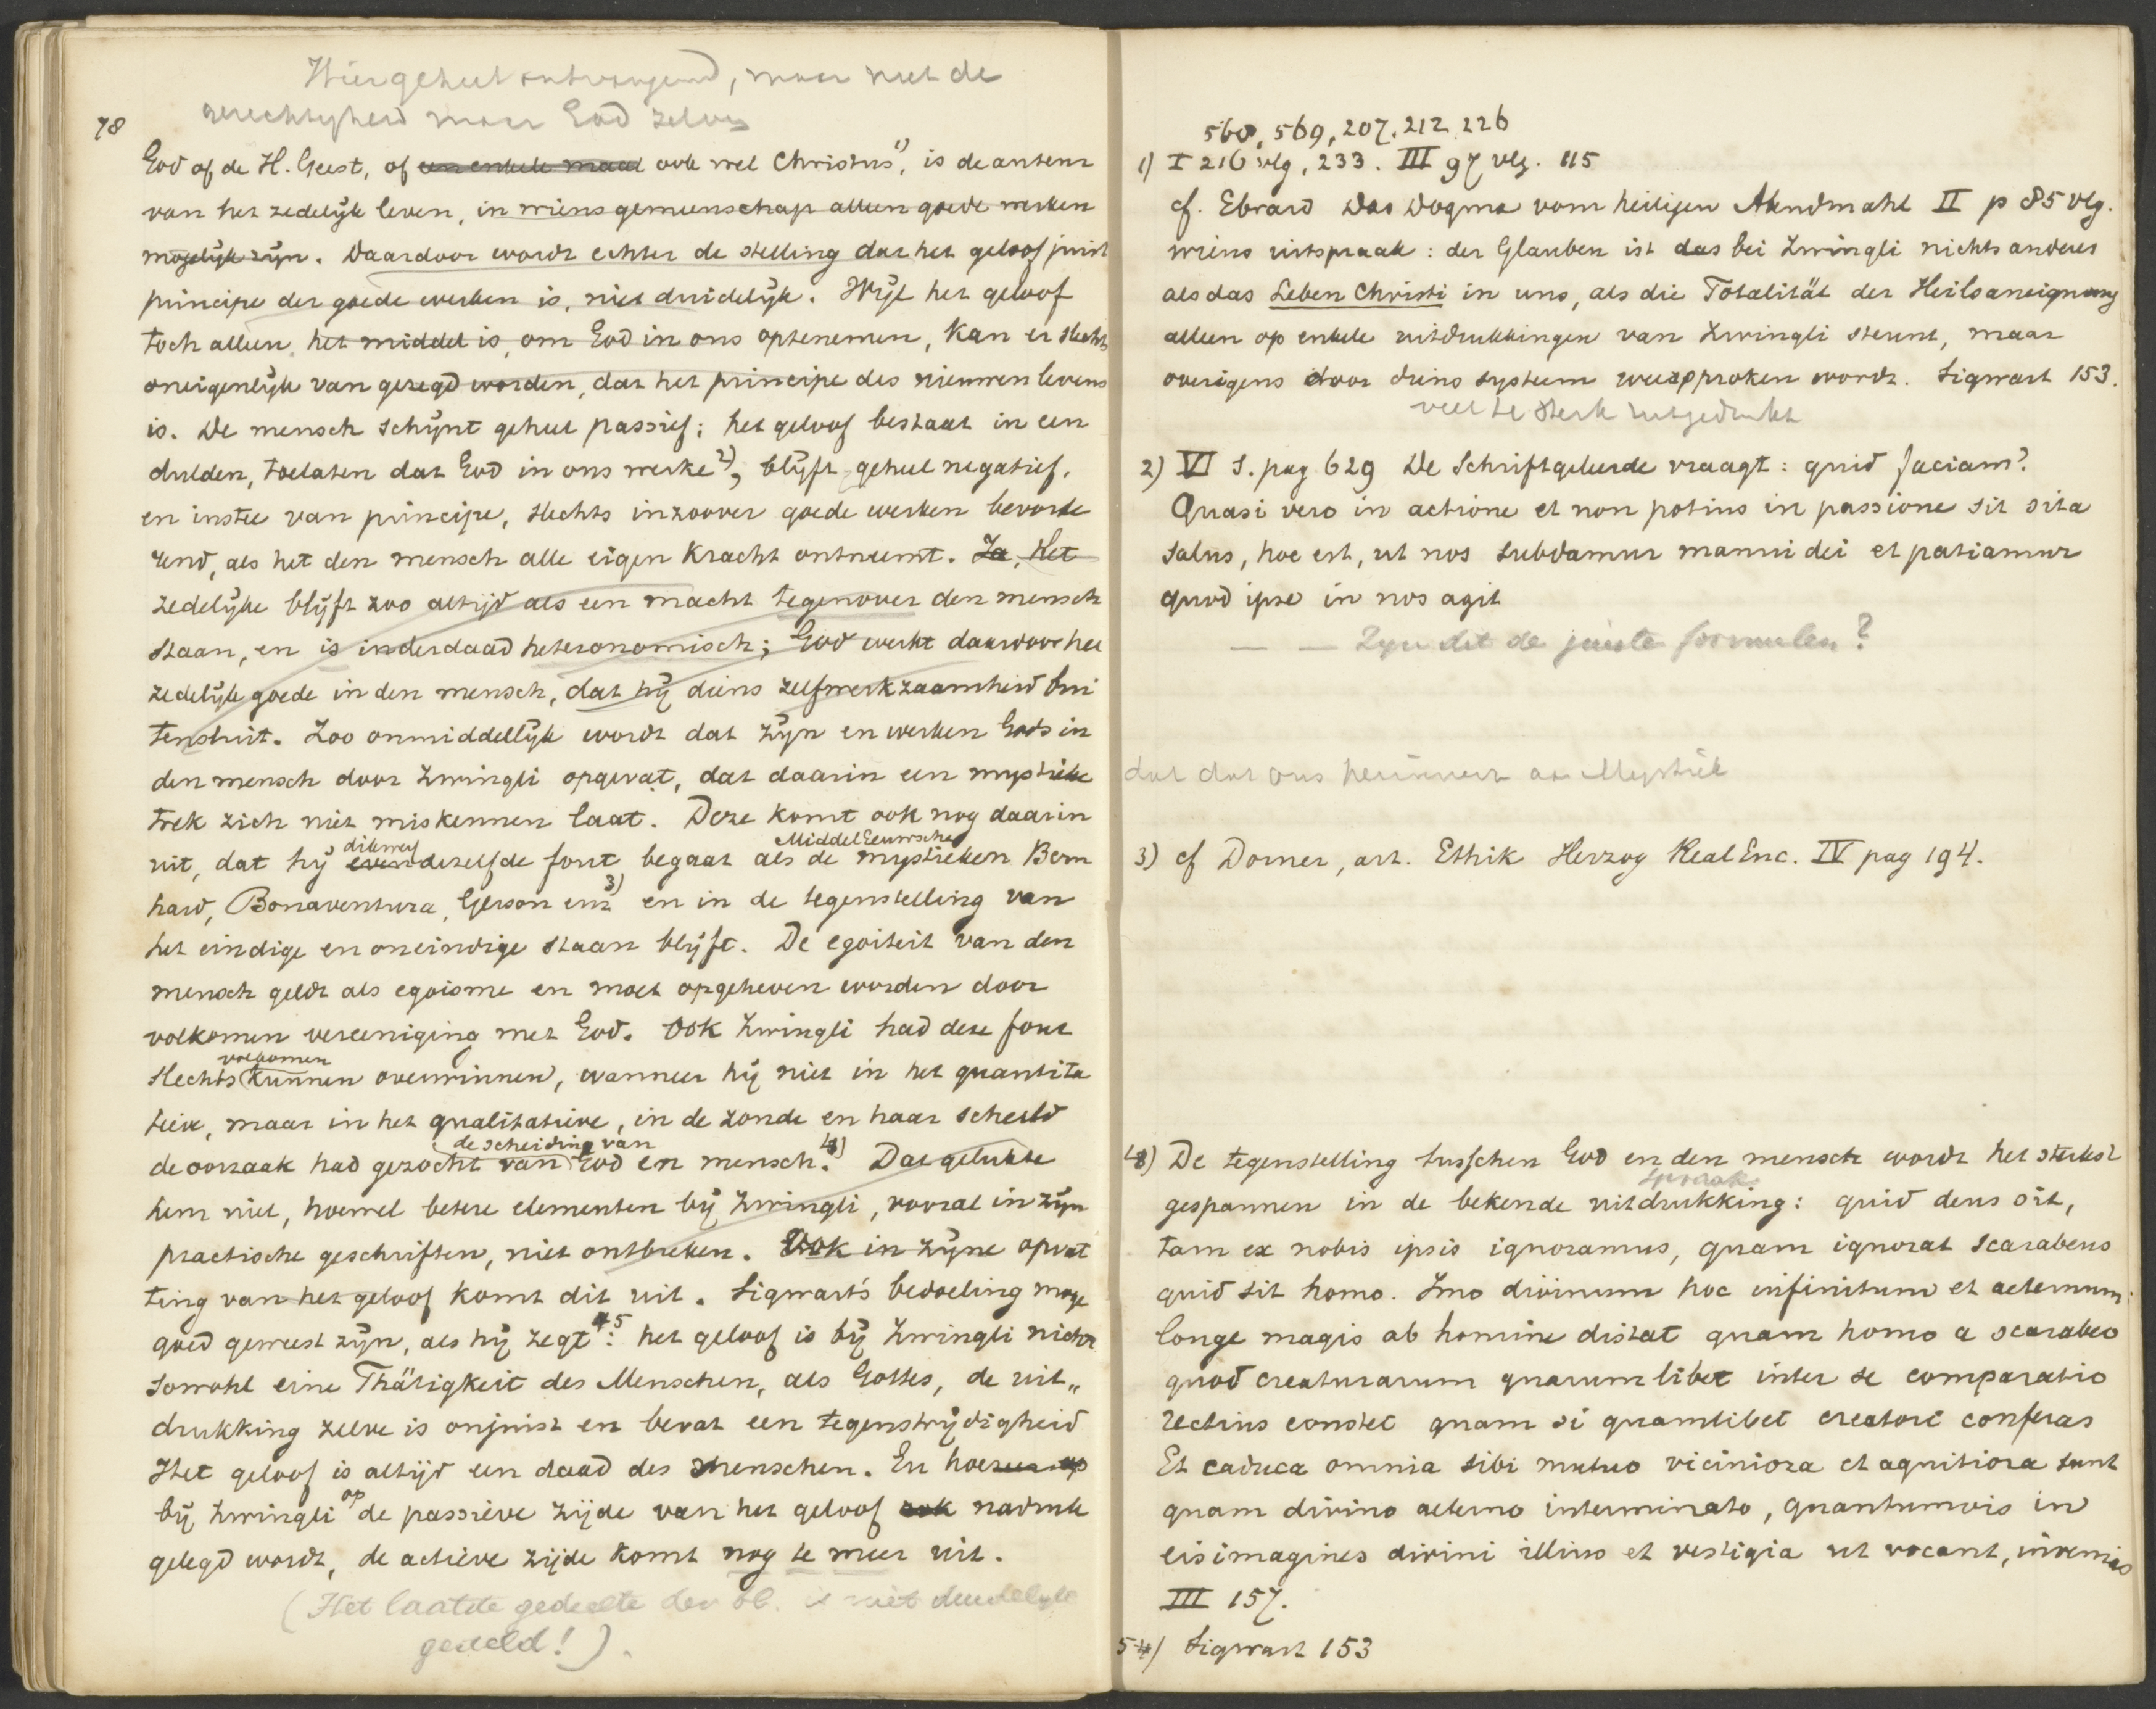 Hier geheel ontvangend, maar niet de
gerechtigheid maar God zelve
78
God of de H. Geest, of een enkele maal ook wel Christus 1), is de auteur
van het zedelijk leven, in wiens gemeenschap alleen goede werken
mogelijk zijn. Daardoor wordt echter de stelling dat het geloof juist
principe der goede werken is, niet duidelijk. Wijl het geloof
toch alleen het middel is, om God in ons optenemen, kan er slechts
oneigenlijk van gezegd worden, dat het principe des nieuwen levens
is. De mensch schijnt geheel passief; het geloof bestaat in een
dulden, toelaten dat God in ons werke 2), blijft geheel negatief,
en instee van principe, slechts inzoover goede werken bevorde
rend, als het den mensch alle eigen kracht ontneemt. Ja, Het
zedelijke blijft zoo altijd als een macht tegenover den mensch
staan, en is inderdaad heteronomisch; God werkt daardoor het
zedelijk goede in den mensch, dat hij diens zelfwerkzaamheid bui
tensluit. Zoo onmiddellijk wordt dat zijn en werken Gods in
den mensch door Zwingli opgevat, dat daarin een mystieke
trek zich niet miskennen laat. Deze komt ook nog daarin
dikwerf MiddelEeuwsche
uit, dat hij even dezelfde fout begaat als de mystieken Bern
hard, Bonaventura, Gerson enz 3) en in de tegenstelling van
het eindige en oneindige staan blijft. De egoiteit van den
mensch geldt als egoisme en moet opgeheven worden door
volkomen vereeniging met God. Ook Zwingli had deze fout
volkomen
slechts kunnen overwinnen, wanneer hij niet in het quantita
tieve, maar in het qualitatieve, in de zonde en haar schuld
de scheiding van
de oorzaak had gezocht van God en mensch. 4) Dat gelukte
hem niet, hoewel betere elementen bij Zwingli, vooral in zijn
practische geschriften, niet ontbreken. Ook in zijne opvat
ting van het geloof komt dit uit. Sigwart's bedoeling moge
goed geweest zijn, als hij zegt 5: het geloof is bij Zwingli nicht
sowohl eine Thätigkeit des Menschen, als Gottes, de uit„
drukking zelve is onjuist en bevat een tegenstrijdigheid
Het geloof is altijd een daad des menschen. En hoezeer op
bij Zwingli op de passieve zijde van het geloof ook nadruk
gelegd wordt, de actieve zijde komt nog te meer uit.
(Het laatste gedeelte der bl. is niet duidelijk
gesteld!).
560, 569, 207, 212, 226
1) I 216 vlg, 233. III 97 vlg. 115
cf. Ebrard Das Dogma vom heiligen Abendmahl II p 85 vlg.
wiens uitspraak: der Glauben ist das bei Zwingli nichts anderes
als das Leben Christi in uns, als die Totalität der Heilsaneignung
alleen op enkele uitdrukkingen van Zwingli steunt, maar
overigens door diens systeem weersproken wordt. Sigwart 153.
veel te sterk uitgedrukt
2) VI S. pag 629 De Schriftgeleerde vraagt: quid faciam?
Quasi vero in actione et non potius in passione sit sita
salus, hoc est, ut nos subdamur manui dei et patiamur
quod ipse in nos agit
— — Zijn dit de juiste formulen?
dat dat ons herinnert aan Mystiek
3) cf Dorner, art. Ethik Herzog Real Enc. IV pag 194.
4) De tegenstelling tusschen God en den mensch wordt het sterkst
spraak
gespannen in de bekende uitdrukking: quid deus sit,
tam ex nobis ipsis ignoramus, quam ignorat scarabeus
quid sit homo. Imo divinum hoc infinitum et aeternum
longe magis ab homine distat quam homo a scarabeo
quod creaturarum quarumlibet inter se comparatio
rectius constet quam si quamlibet creatori conferas
Et caduca omnia sibi mutuo viciniora et agnitiora sunt
quam divino aeterno interminato, quantumvis in
eis imagines divini illius et vestigia ut vocant, invenias
III 157.
5 4) Sigwart 153